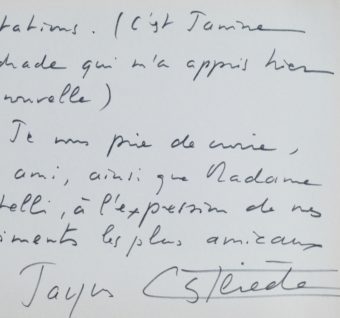 tations. (C'est Janine
drade qui m'a appris hier
nouvelle)
Je vous prie de croire,
ami, ainsi que Madame
telli, à l'expression de mes
iments les plus amicaux
Jacques Castérède